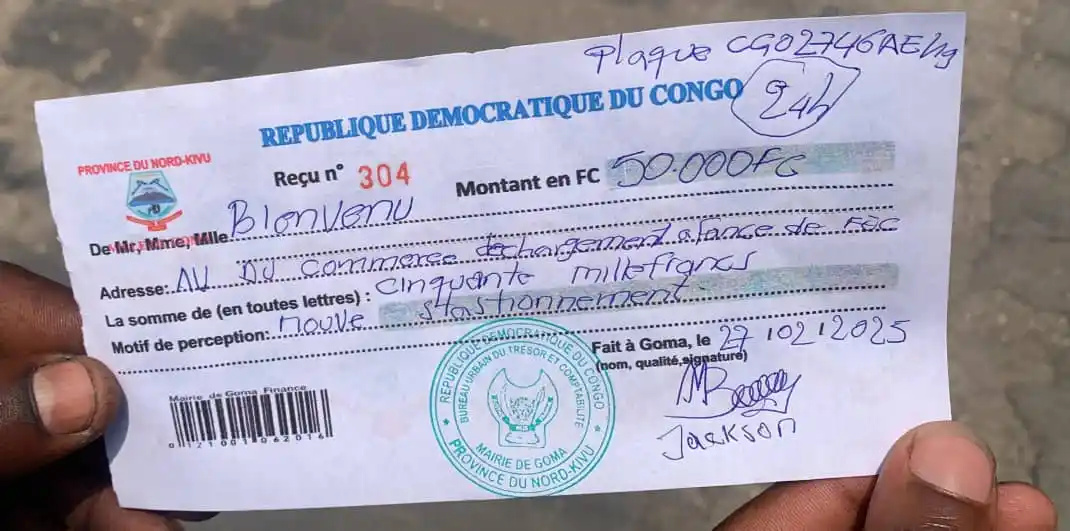 Plaque CG02746AE/19
REPUBLIQUE DEMOCRATIQUE DU CONGO
24h
PROVINCE DU NORD-KIVU
Reçu n° 304
Montant en FC 50.000FC
De Mr, Mme, Mlle Bienvenu
Adresse: AV DU Commerce dechargement a face de FEC
La somme de (en toutes lettres) : cinquante millefrancs
Motif de perception: mouve stastionnement
Fait à Goma, le 27/02/2025
(nom, qualité, signature)
Jackson
Mairie de Goma Finance
0121001062016
REPUBLIQUE DEMOCRATIQUE DU CONGO
BUREAU URBAIN DU TRESOR ET COMPTABILITE
MAIRIE DE GOMA
PROVINCE DU NORD-KIVU